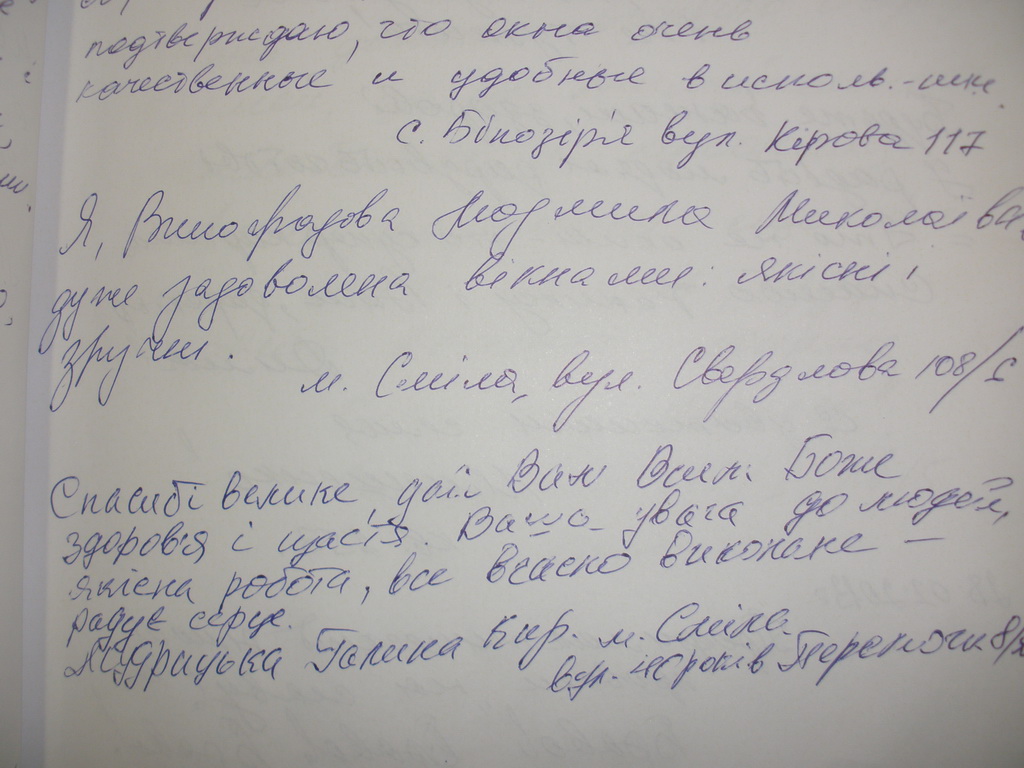 подтверждаю, что окна очень
качественные и удобные в исполь.-нии.
с. Білозір'я вул. Кірова 117
Я, Виноградова Людмила Миколаївна,
дуже задоволена вікнами: якісні,
зручні.
м. Сміла, вул. Свердлова 108/
Спасибі велике, дай Вам Боже
здоров'я і щастя. Ваша увага до людей,
якісна робота, все вчасно виконане –
радує серце.
Галина Кир. м. Сміла
вул. 40 років Перемоги 8/